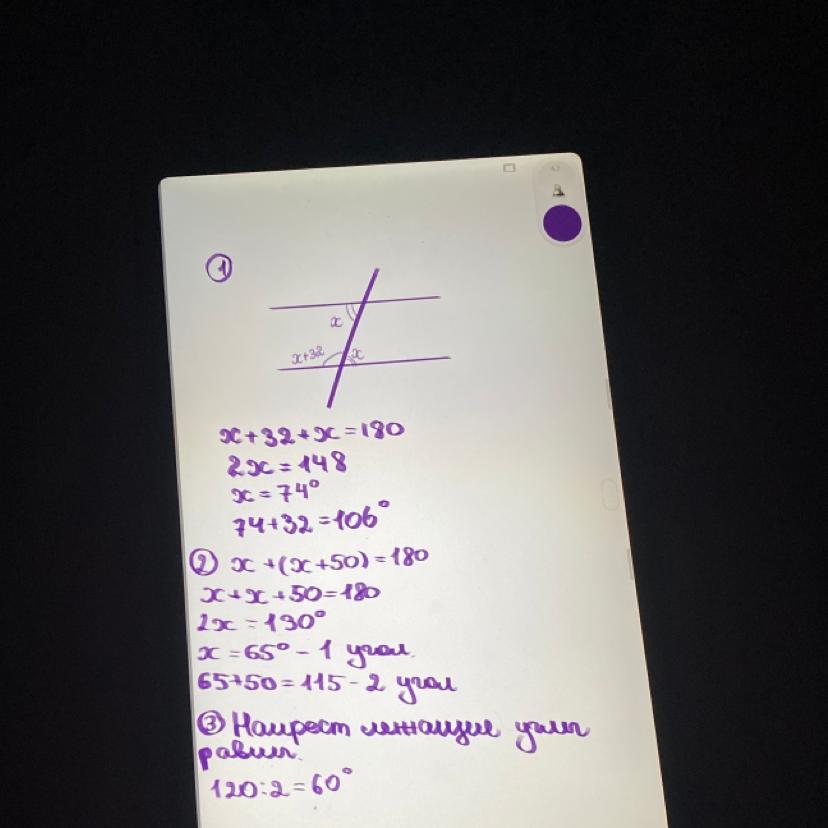 1
x
x+32 x
x+32+x=180
2x=148
x=74°
74+32=106°
2 x+(x+50)=180
x+x+50=180
2x=130°
x=65°-1 угол.
65+50=115-2 угол
3 Накрест лежащие углы
равны.
120:2=60°